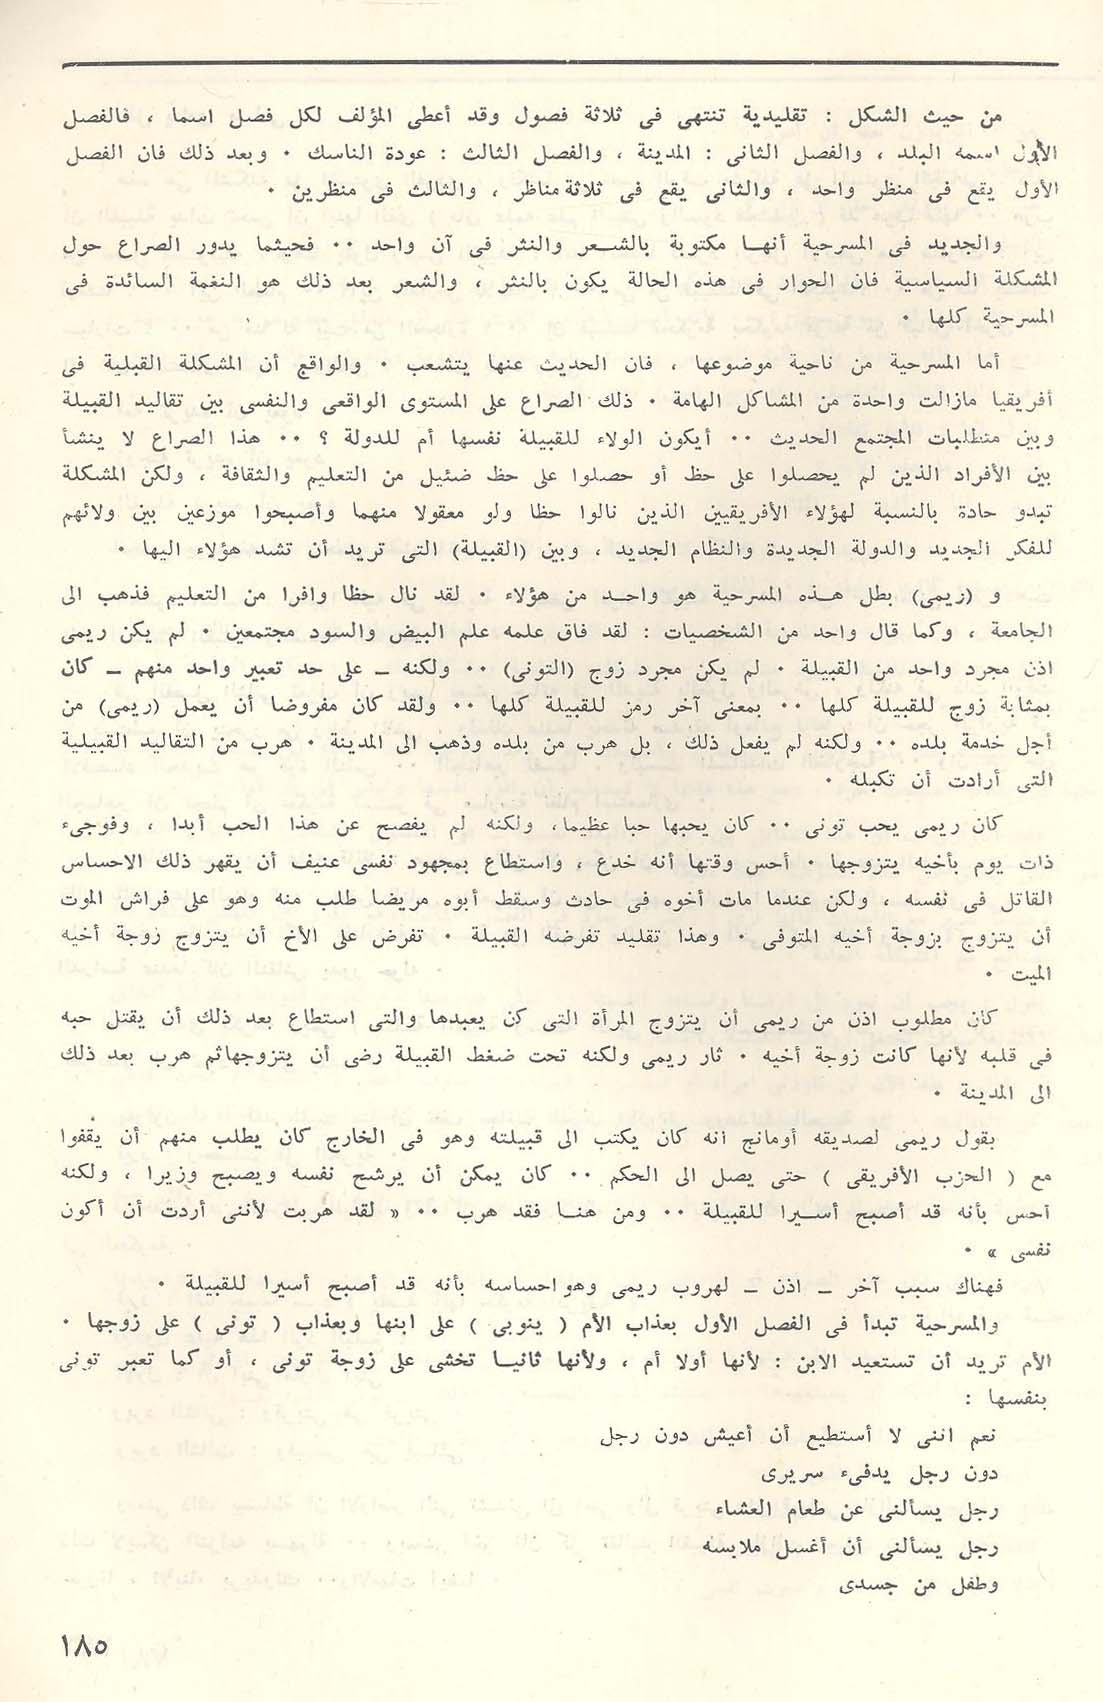 من حيث الشكل : تقليدية تنتهى فى ثلاثة فصول وقد أعطى المؤلف لكل فصل اسما ، فالفصل
الأول اسمه البلد ، والفصل الثانى : المدينة ، والفصل الثالث : عودة الناسك ٠ وبعد ذلك فان الفصل
الأول يقع فى منظر واحد ، والثانى يقع فى ثلاثة مناظر ، والثالث فى منظرين ٠
والجديد فى المسرحية أنهـا مكتوبة بالشـعر والنثر فى آن واحد ٠٠ فحيثما يدور الصراع حول
المشكلة السياسية فان الحوار فى هذه الحالة يكون بالنثر ، والشعر بعد ذلك هو النغمة السائدة فى
المسرحية كلها ٠
أما المسرحية من ناحية موضوعها ، فان الحديث عنها يتشعب ٠ والواقع أن المشكلة القبلية فى
أفريقيا مازالت واحدة من المشاكل الهامة ٠ ذلك الصراع على المستوى الواقعى والنفسى بين تقاليد القبيلة
وبين متطلبات المجتمع الحديث ٠٠ أيكون الولاء للقبيلة نفسها أم للدولة ؟ ٠٠ هذا الصراع لا ينشأ
بين الأفراد الذين لم يحصلوا على حظ أو حصلوا على حظ ضئيل من التعليم والثقافة ، ولكن المشكلة
تبدو حادة بالنسبة لهؤلاء الأفريقيين الذين نالوا حظا ولو معقولا منهما وأصبحوا موزعين بين ولائهم
للفكر الجديد والدولة الجديدة والنظام الجديد ، وبين (القبيلة) التى تريد أن تشد هؤلاء اليها ٠
و (ريمى) بطل هـذه المسرحية هو واحـد من هؤلاء ٠ لقد نال حظا وافرا من التعليم فذهب الى
الجامعة ، وكما قال واحد من الشخصيات : لقد فاق علمه علم البيض والسود مجتمعين ٠ لم يكن ريمى
اذن مجرد واحد من القبيلة ٠ لم يكن مجرد زوج (التونى) ٠٠ ولكنه ـ على حد تعبير واحد منهم ـ كان
بمثابة زوج للقبيلة كلها ٠٠ بمعنى آخر رمز للقبيلة كلها ٠٠ ولقد كان مفروضا أن يعمل (ريمى) من
أجل خدمة بلده ٠٠ ولكنه لم يفعل ذلك ، بل هرب من بلده وذهب الى المدينة ٠ هرب من التقاليد القبيلية
التى أرادت أن تكبله ٠
كان ريمى يحب تونى ٠٠ كان يحبها حبا عظيما، ولكنه لم يفصح عن هذا الحب أبدا ، وفوجىء
ذات يوم بأخيه يتزوجها ٠ أحس وقتها أنه خدع ، واستطاع بمجهود نفسى عنيف أن يقهر ذلك الاحساس
القاتل فى نفسه ، ولكن عندما مات أخوه فى حادث وسقط أبوه مريضا طلب منه وهو على فراش الموت
أن يتزوج بزوجة أخيه المتوفى ٠ وهذا تقليد تفرضه القبيلة ٠ تفرض على الأخ أن يتزوج زوجة أخيه
الميت ٠
كان مطلوب اذن من ريمى أن يتزوج المرأة التى كن يعبدها والتى استطاع بعد ذلك أن يقتل حبه
فى قلبه لأنها كانت زوجة أخيه ٠ ثار ريمى ولكنه تحت ضغط القبيلة رضى أن يتزوجهاثم هرب بعد ذلك
الى المدينة ٠
بقول ريمى لصديقه أومانج انه كان يكتب الى قبيلته وهو فى الخارج كان يطلب منهم أن يقفوا
مع ( الحزب الأفريقى ) حتى يصل الى الحكم ٠٠ كان يمكن أن يرشح نفسه ويصبح وزيرا ، ولكنه
أحس بأنه قد أصبح أسـيرا للقبيلة ٠٠ ومن هنـا فقد هرب ٠٠ « لقد هربت لأننى أردت أن أكون
نفسى » ٠
فهناك سبب آخر ـ اذن ـ لهروب ريمى وهو احساسه بأنه قد أصبح أسيرا للقبيلة ٠
والمسرحية تبدأ فى الفصل الأول بعذاب الأم ( ينوبى ) على ابنها وبعذاب ( تونى ) على زوجها ٠
الأم تريد أن تستعيد الابن : لأنها أولا أم ، ولأنها ثانيـا تخشى على زوجة تونى ، أو كما تعبر تونى
بنفسها :
نعم اننى لا أستطيع أن أعيش دون رجل
دون رجل يدفىء سريرى
رجل يسألنى عن طعام العشاء
رجل يسألنى أن أغسل ملابسه
وطفل من جسدى
١٨٥